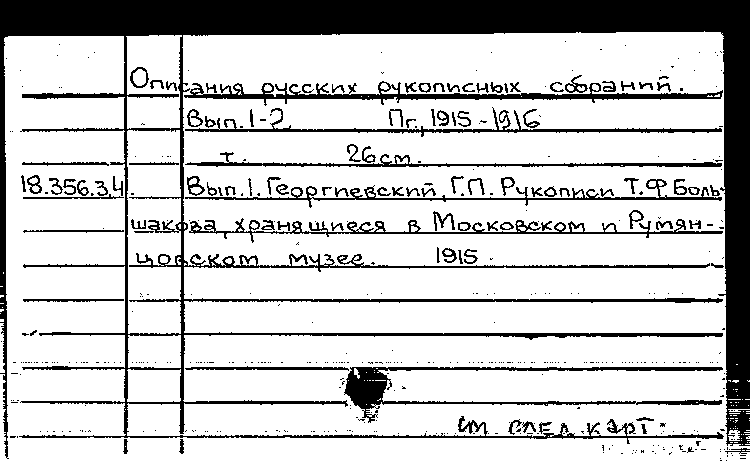 Описания русских рукописных собраний.
Вып.1-2. Пг., 1915-1916
т. 26см.
18.356.3,4. Вып.1. Георгиевский, Г.П. Рукописи Т.Ф.Боль-
шакова, хранящиеся в Московском и Румян-
цовском музее. 1915.
см. след. карт.